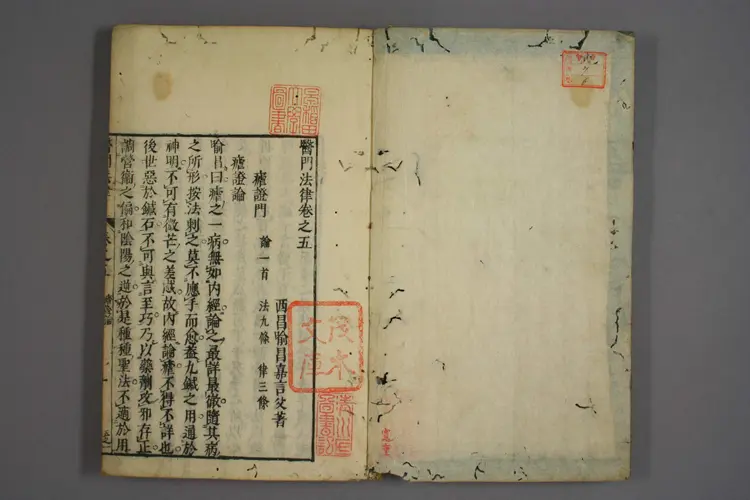 醫門法律卷之五
西昌喻昌嘉言父著
瘧證門 論一首 法九條 律三條
瘧證論
喻昌曰瘧之一病無如內經論之最詳最儆隨其病
之所形按法刺之莫不應手而愈蓋九鍼之用通於
神明不可有微芒之差忒故內經論瘧不得不詳也
後世惡於鍼石不可與言至巧乃以藥劑攻邪存正
調營衛之偏和陰陽之逆於是種種聖法不適於用
早稻田大學圖書
茂木文庫